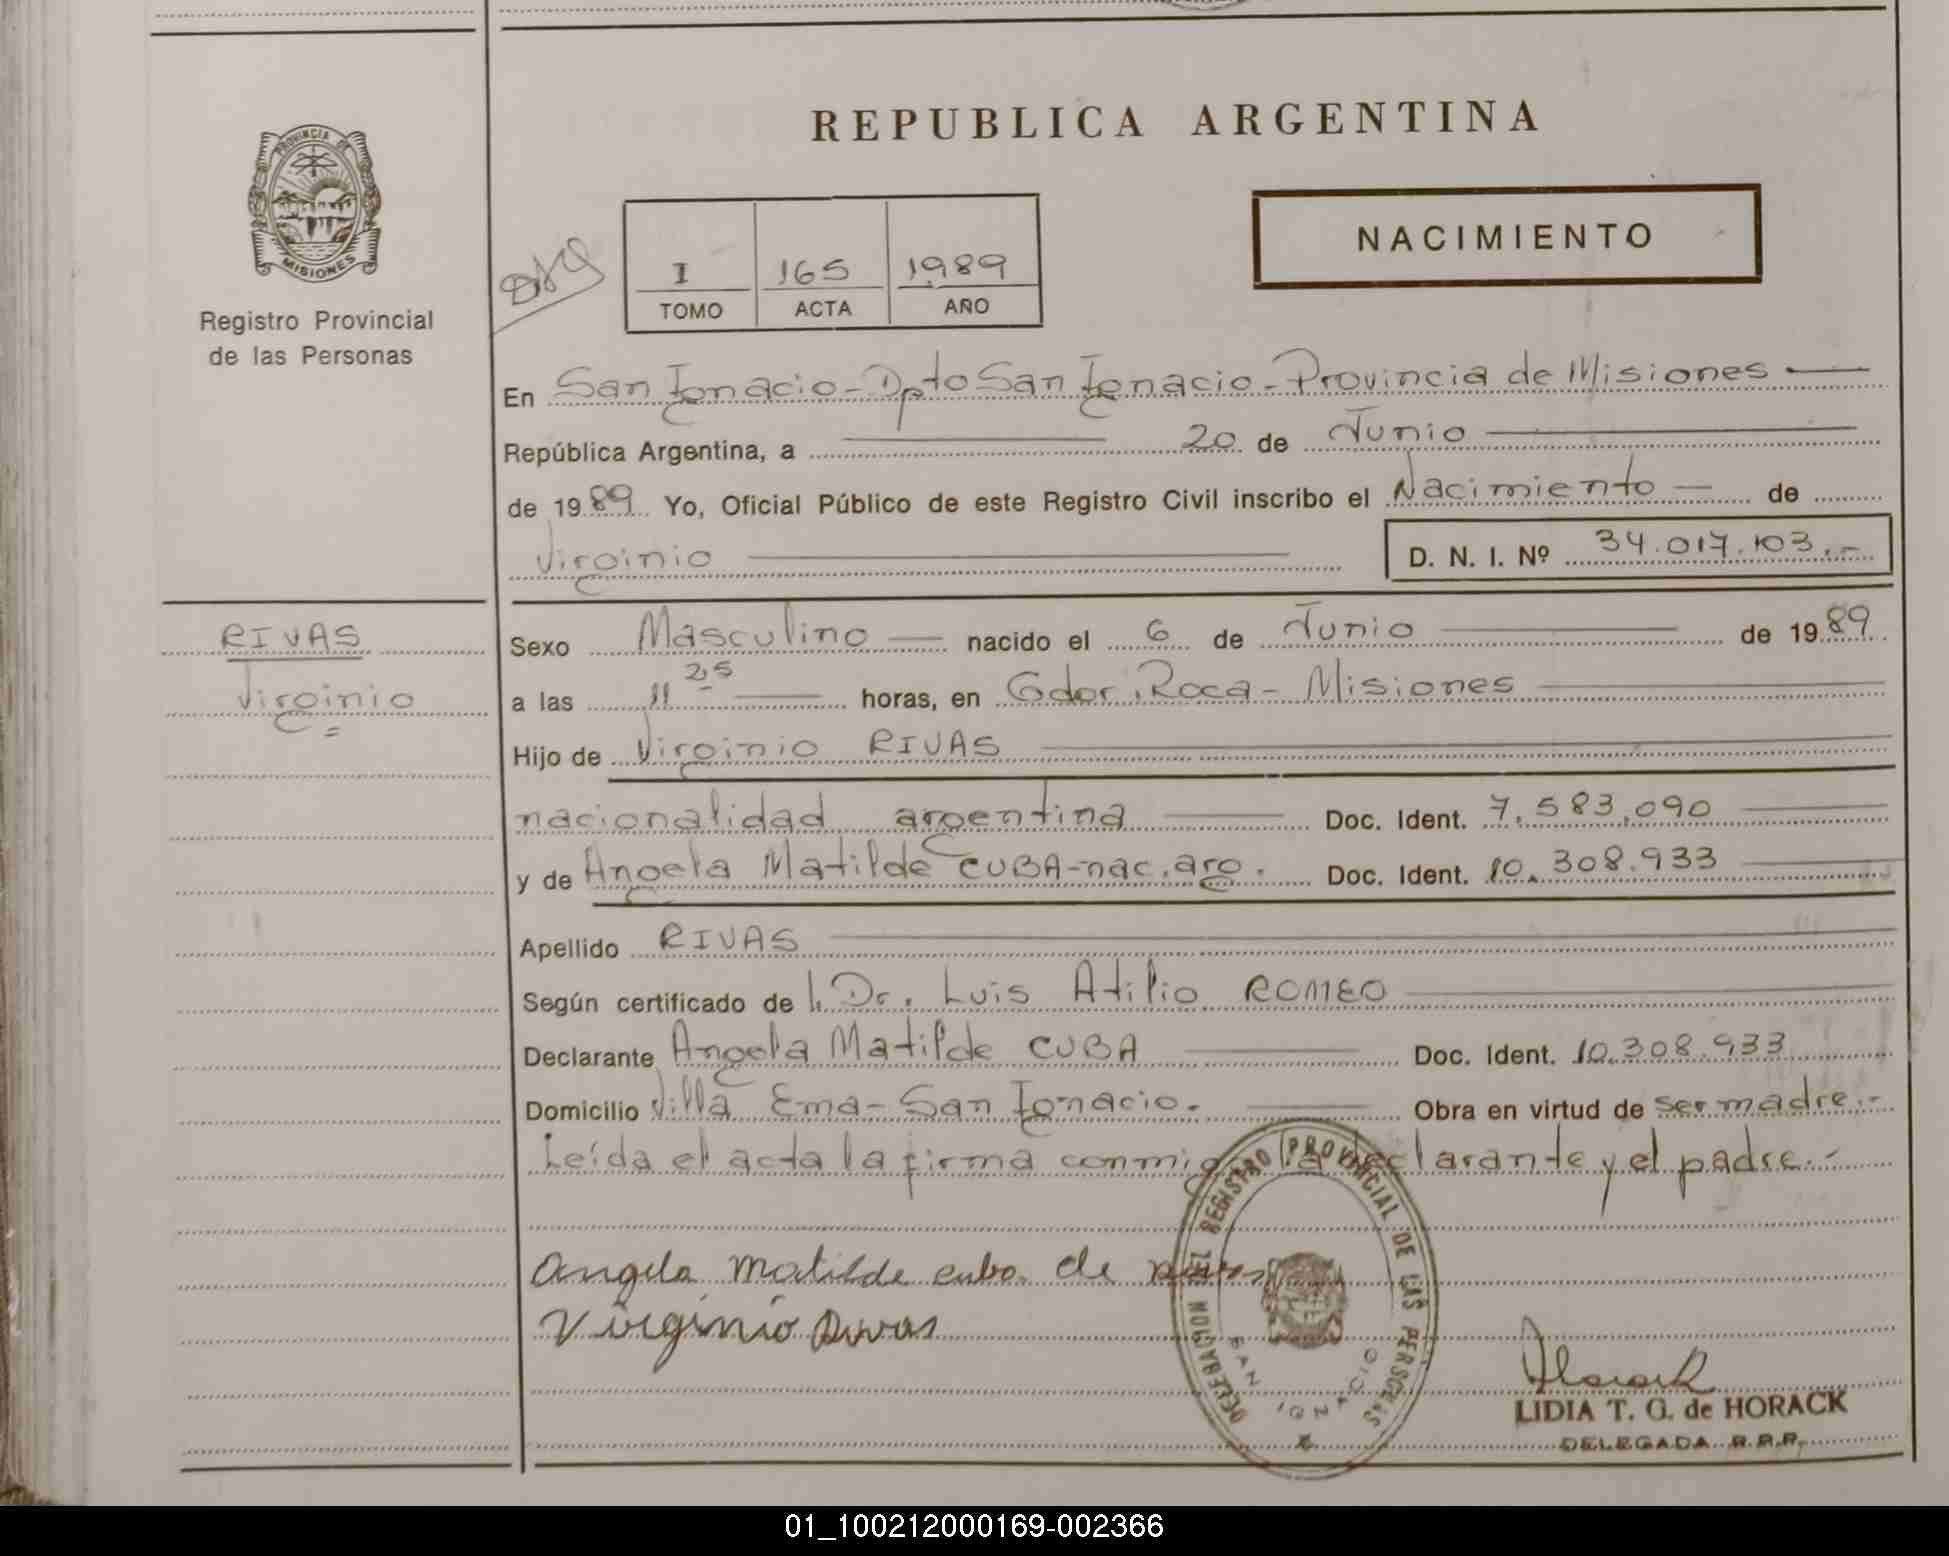 REPUBLICA ARGENTINA
PROVINCIA DE
MISIONES
Registro Provincial
de las Personas
NACIMIENTO
I 165 1989
TOMO ACTA AÑO
En San Ignacio - Dpto San Ignacio - Provincia de Misiones
República Argentina, a 20 de Junio
de 1989 Yo, Oficial Público de este Registro Civil inscribo el Nacimiento de
Virginio D. N. I. Nº 34.017.103.-
RIVAS
Virginio
Sexo Masculino nacido el 6 de Junio de 1989
a las 11 25 horas, en Gdor. Roca - Misiones
Hijo de Virginio RIVAS
nacionalidad argentina Doc. Ident. 7.583.090
y de Angela Matilde CUBA-nac. arg. Doc. Ident. 10.308.933
Apellido RIVAS
Según certificado de l. Dr. Luis Atilio ROMEO
Declarante Angela Matilde CUBA Doc. Ident. 10.308.933
Domicilio Villa Ema - San Ignacio. Obra en virtud de ser madre.-
Leída el acta la firma conmigo la declarante y el padre.-
Angela Matilde cuba de rivas
Virginio Rivas
DELEGACION DEL REGISTRO PROVINCIAL DE LAS PERSONAS
SAN IGNACIO
Horack
LIDIA T. G. de HORACK
DELEGADA R.P.P.
01_100212000169-002366